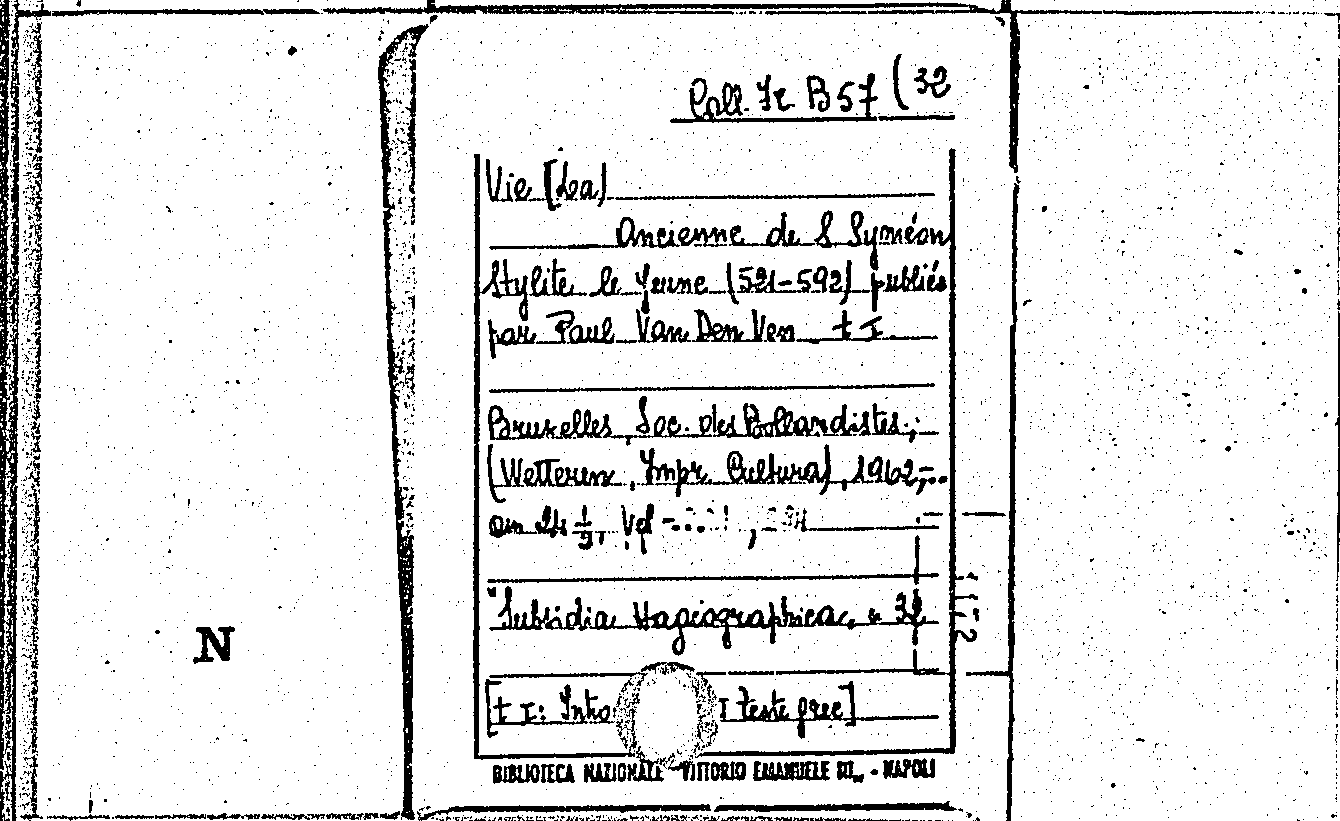 Coll. Fr. B 57 (32
Vie [La]
Ancienne de S Syméon
Stylite le Jeune (521-592) publiée
par Paul Van Den Ven t I
Bruxelles, Soc. des Bollandistes;
(Wetteren, Impr. Cultura), 1962,-..
Vol
"Subsidia Hagiographica, n 32
N
[t I: Intro I texte grec]
BIBLIOTECA NAZIONALE VITTORIO EMANUELE III - NAPOLI